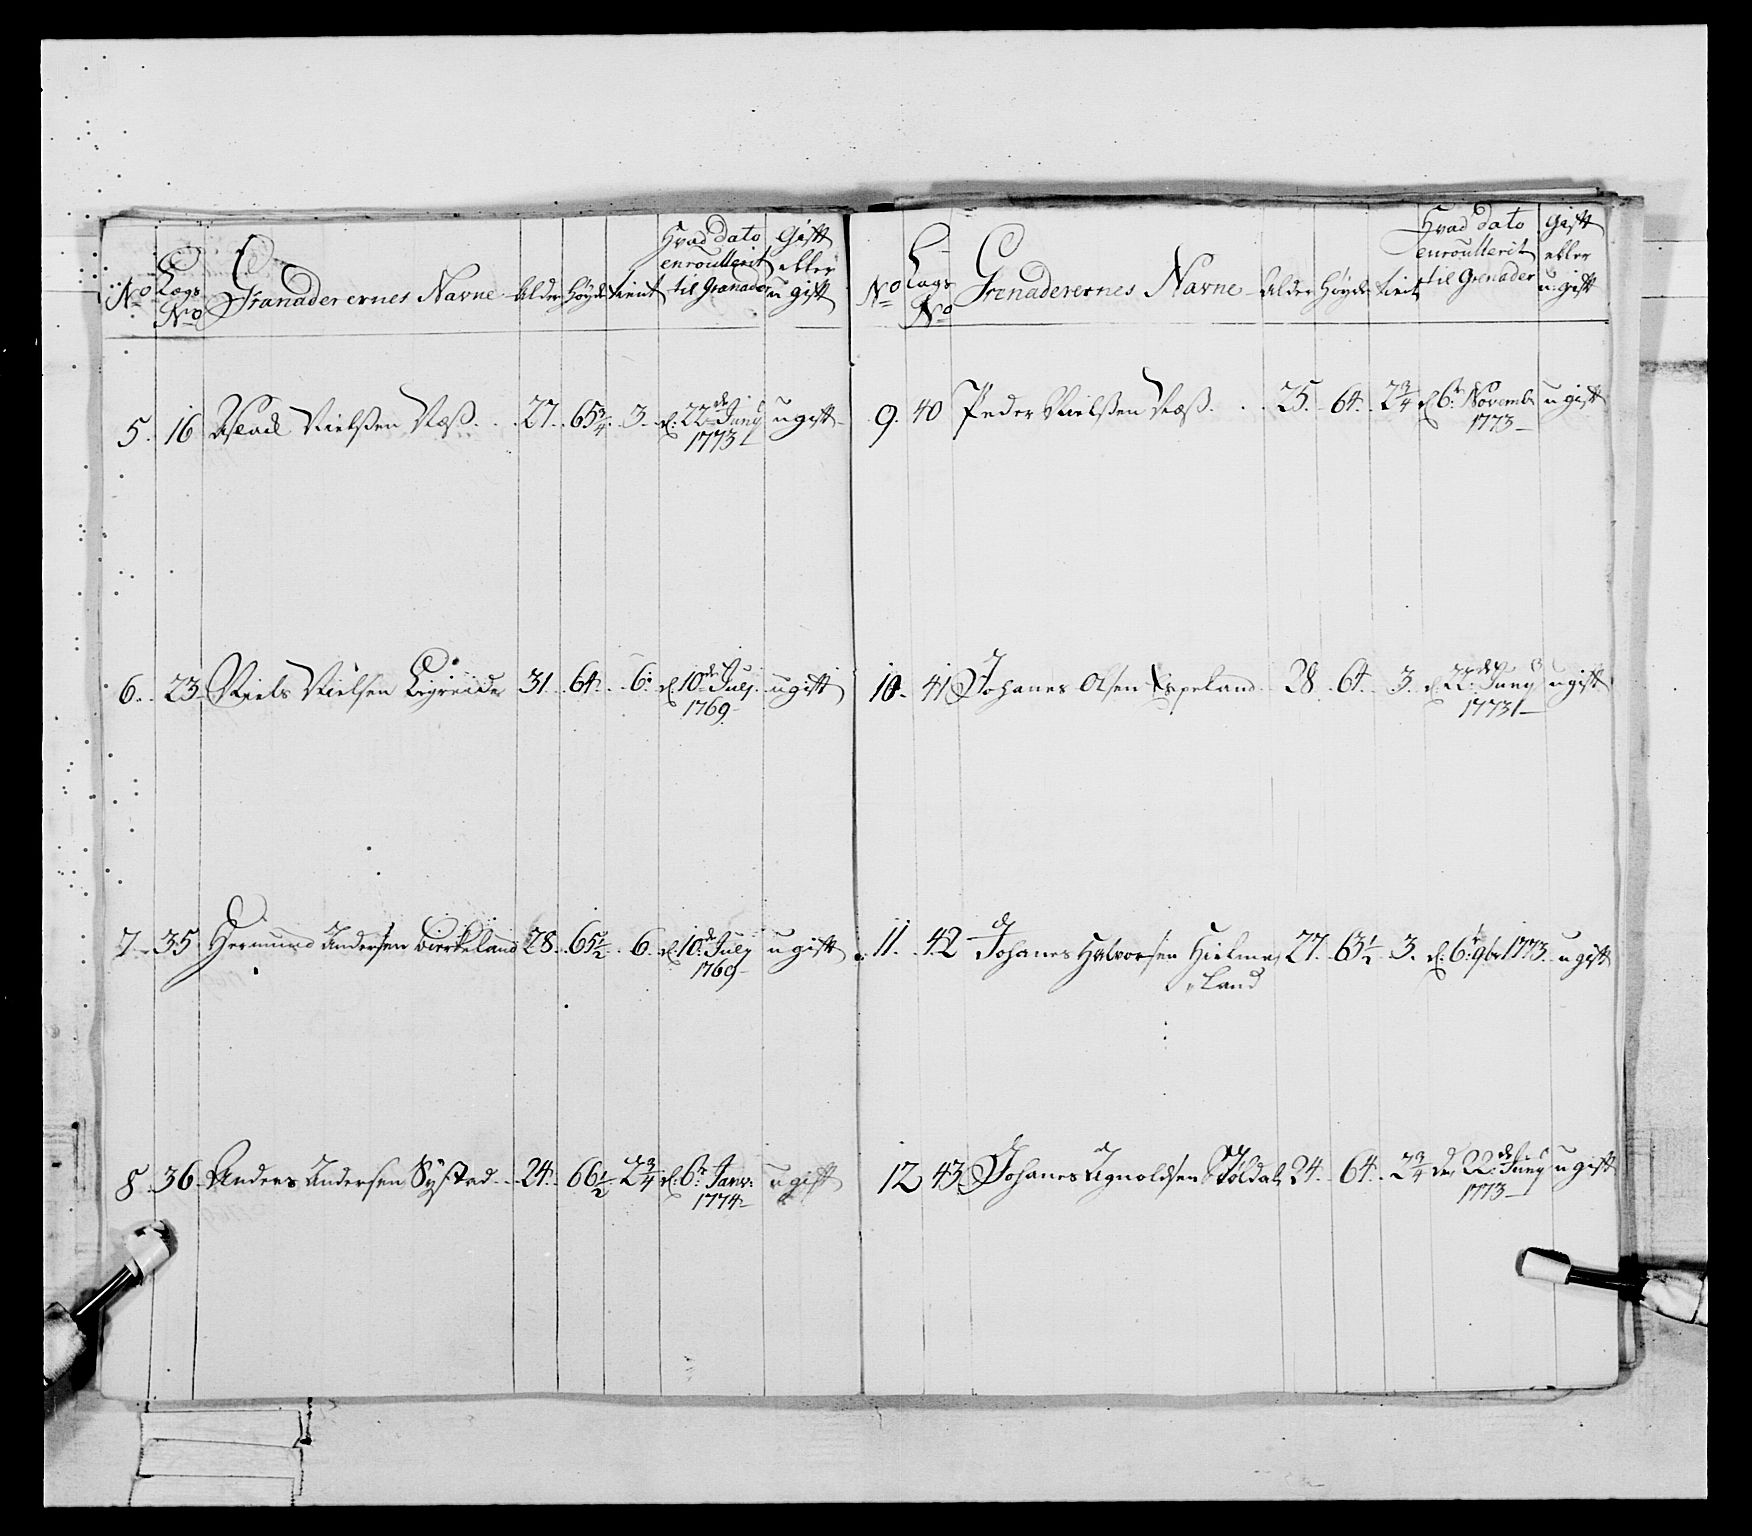 No Lægs No Granaderernes Navne Alder Høyde tient Hvad dato enroullerit til Granader Gift eller u gift
5. 16 Aslack Nielsen Næss. 27. 65 3/4. 3. d: 22de Juny 1773 ugift
6. 23 Niels Nielsen Ligreider 31. 64. 6. d. 10de July 1769 ugift
7. 35 Hermund Andersen Birkeland 28. 65 1/2. 6. d. 10de July 1769 ugift
8. 36 Anders Andersen Systad 24. 66 1/2 2 3/4 d. 6te Janv: 1774 ugift
No Lags No Grenaderernes Navne Alder Høyde tient Hvad dato enroullerit til Grenader Gift eller ugift
9. 40 Peder Nielsen Næss. 25. 64. 2 3/4 d 6te Novembr 1773 ugift
10. 41 Johanes Olsen Espeland 28. 64. 3. d. 22de Juny 1773 ugift
11. 42 Johanes Halvorsen Hielme 27. 63 1/2 3. d. 6te 9br 1773. ugift
Land
12 43 Johanes Agnoldsen 24. 64. 2 3/4 den 22de Juny 1773 ugift